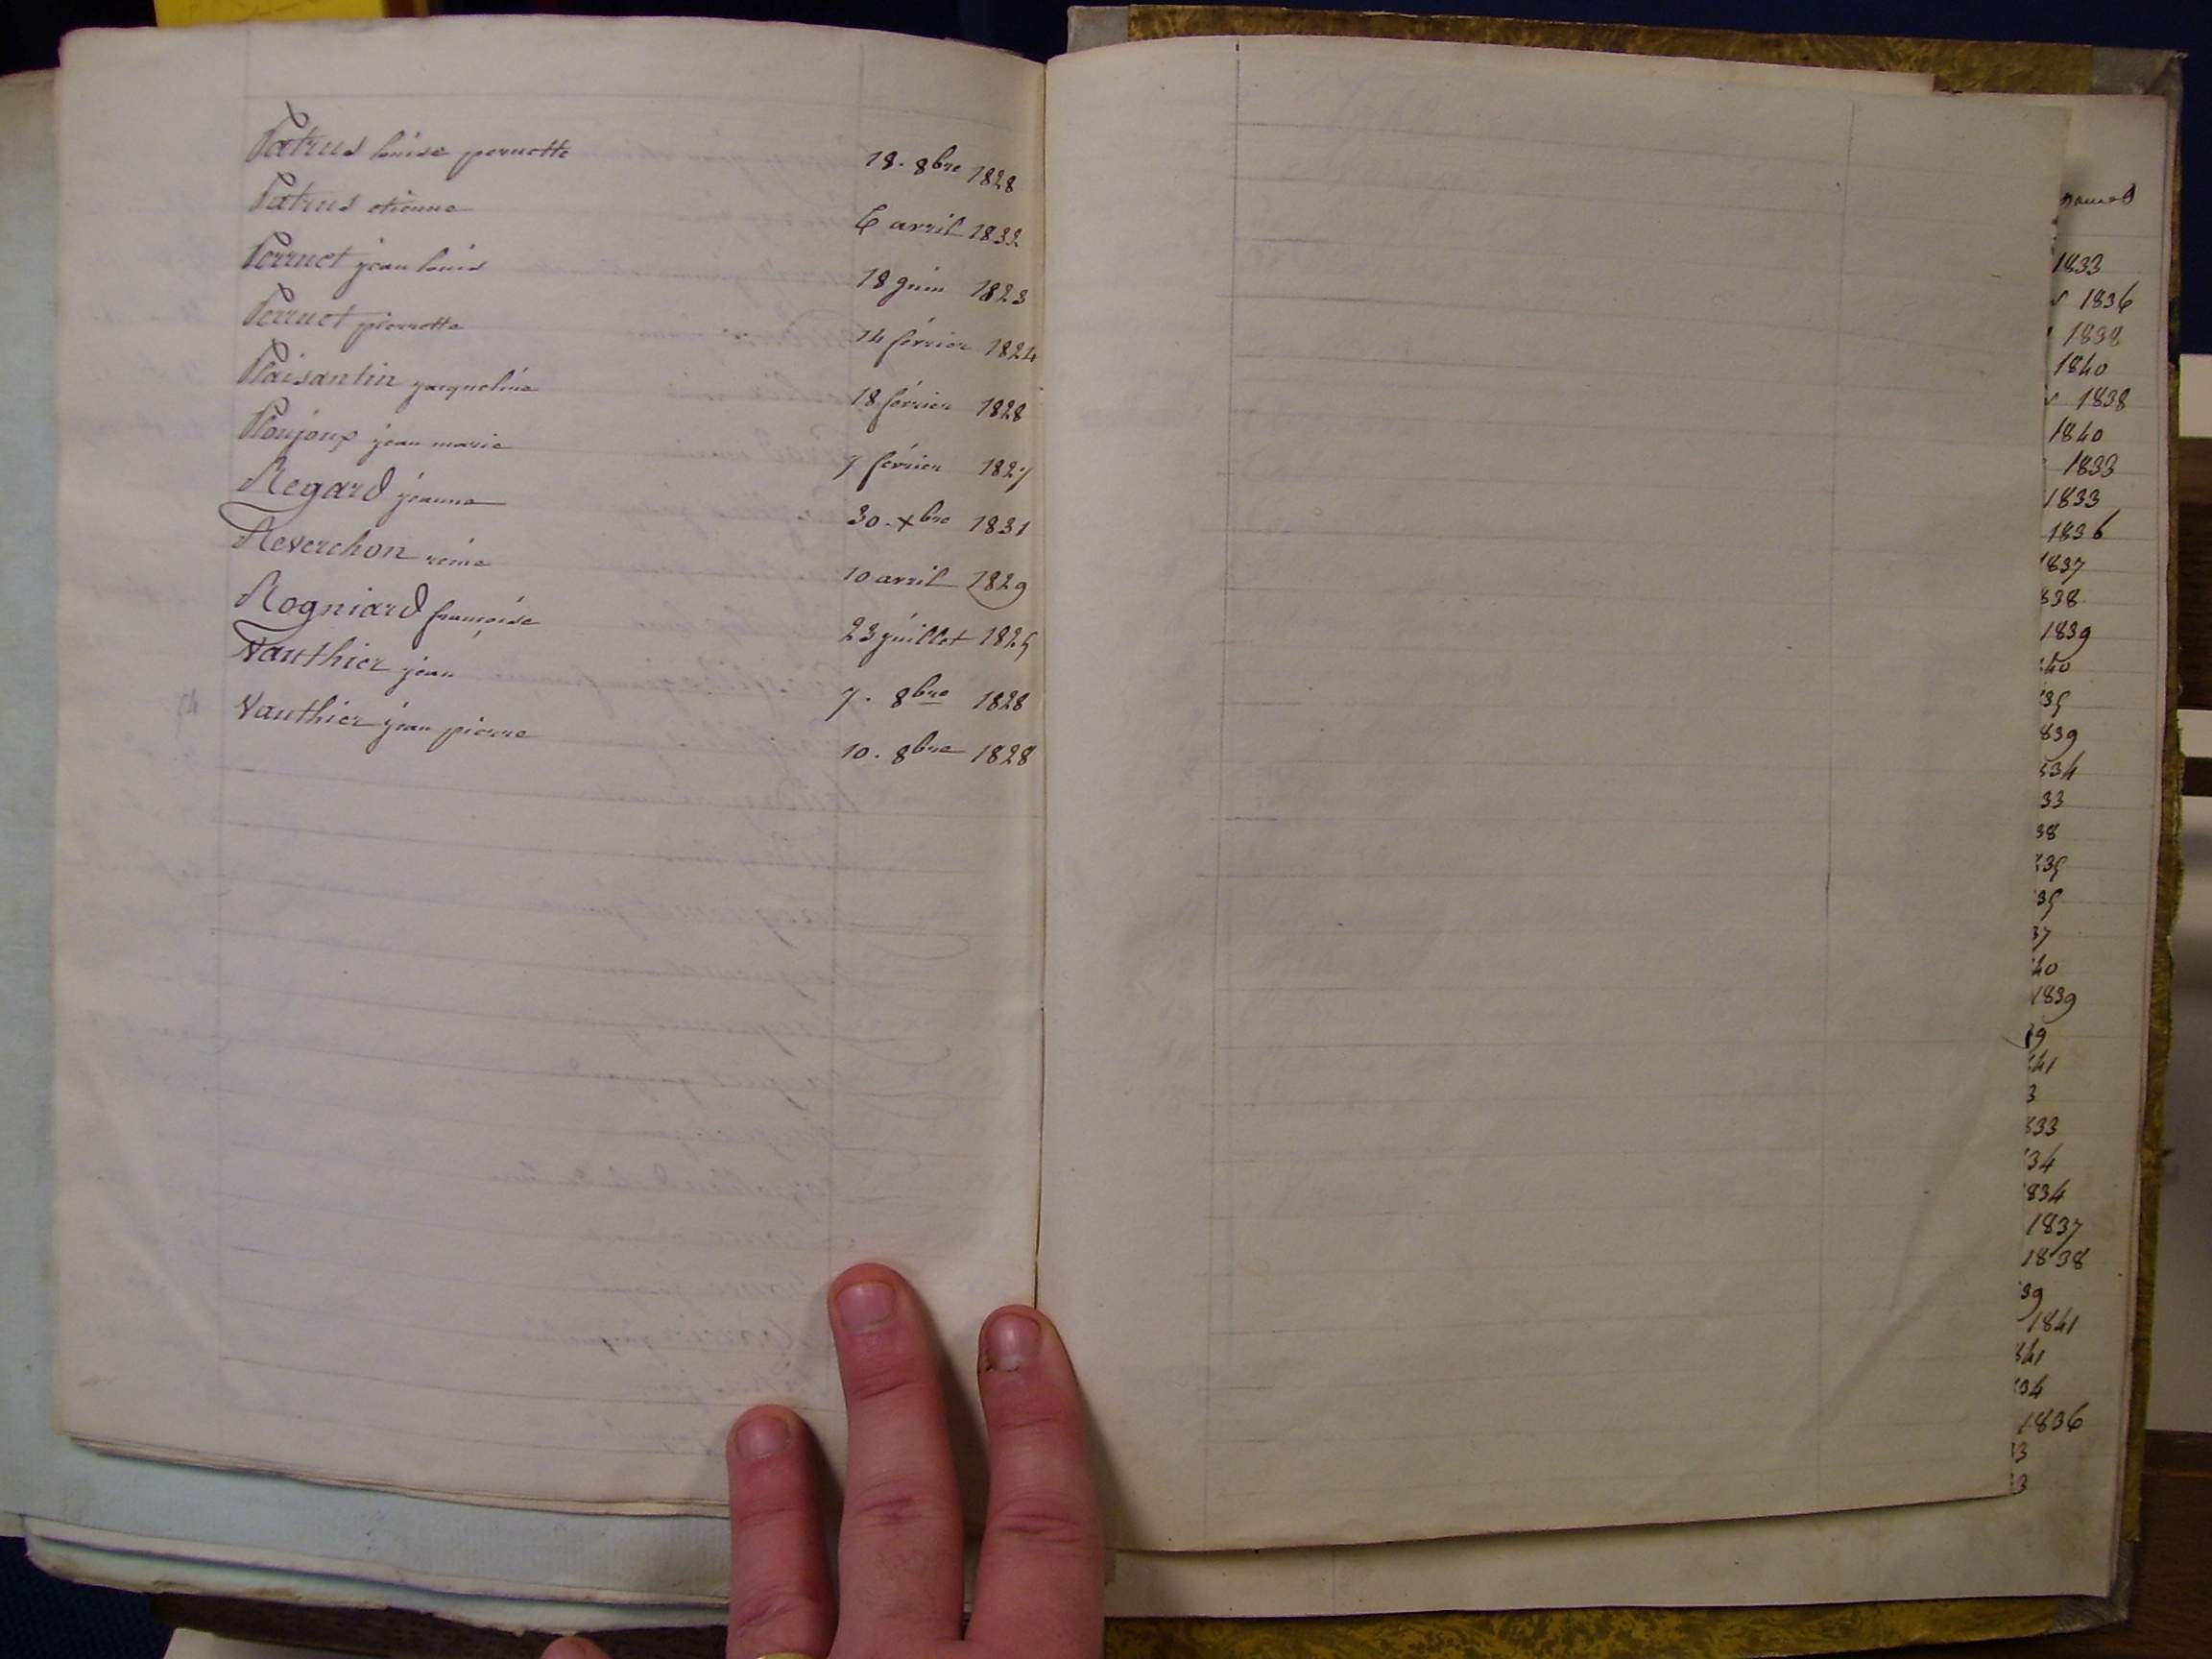 Patrus louise pernette 18. 8bre 1828
Patrus etienne 6 avril 1832
Perruet jean louis 18 juin 1823
Perruet pierrette 14 février 1824
Plaisantin jacqueline 18 février 1828
Ponjoux jean marie 7 février 1827
Regard jeanne 30. xbre 1831
Reverchon reine 10 avril 1829
Rogniard françoise 23 juillet 1825
Vauthier jean 7. 8bre 1828
Vauthier jean pierre 10. 8bre 1828
1833
1836
1838
1840
1838
1840
1833
1833
1836
1837
838
1839
40
35
839
34
33
38
35
35
37
40
1839
9
41
3
33
34
834
1837
1838
39
1841
41
34
1836
3
3